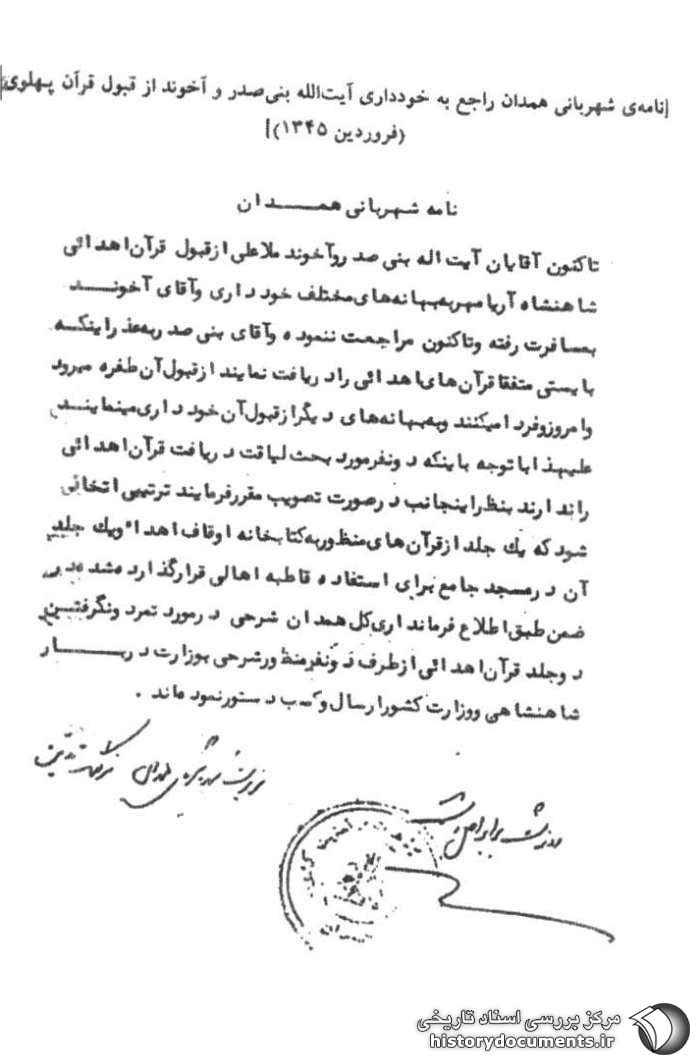 [نامه‌ی شهربانی همدان راجع به خودداری آیت‌الله بنی‌صدر و آخوند از قبول قرآن پهلوی
(فروردین ۱۳۴۵)]
نامه شهربانی همدان
تاکنون آقایان آیت اله بنی صدر و آخوند ملاعلی از قبول قرآن اهدائی
شاهنشاه آریامهر به بهانه‌های مختلف خودداری و آقای آخوند
بمسافرت رفته و تاکنون مراجعت ننموده و آقای بنی صدر به عذر اینکه
بایستی متفقا قرآن های اهدائی را دریافت نمایند از قبول آن طفره میرود
و امروز و فردا میکنند و به بهانه‌های دیگر از قبول آن خودداری مینمایند
علیهذا با توجه باینکه دونفر مورد بحث لیاقت دریافت قرآن اهدائی
را ندارند بنظر اینجانب در صورت تصویب مقرر فرمایند ترتیبی اتخاذ
شود که یك جلد از قرآن های منظور به کتابخانه اوقاف اهداء و یك جلد
آن در مسجد جامع برای استفاده قاطبه اهالی قرار گذارده شد
ضمن طبق اطلاع فرمانداری کل همدان شرحی در مورد تمرد و نگرفتن
دو جلد قرآن اهدائی از طرف دونفر منظور شرحی بوزارت دربار
شاهنشاهی و وزارت کشور ارسال و کسب دستور نموده‌اند .
رونوشت برابر اصل است
مرکز بررسی اسناد تاریخی
historydocuments.ir